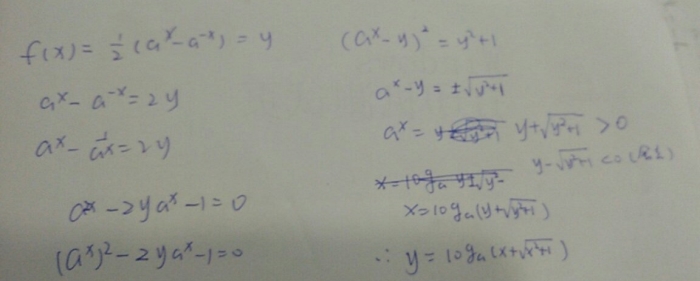 f(x) = 1/2 (a^x - a^-x) = y
a^x - a^-x = 2y
a^x - 1/a^x = 2y
a^2x - 2ya^x - 1 = 0
(a^x)^2 - 2ya^x - 1 = 0
(a^x - y)^2 = y^2 + 1
a^x - y = ±√(y^2+1)
a^x = y + √(y^2+1) > 0
y - √(y^2+1) < 0
x = log_a (y + √(y^2+1))
∴ y = log_a (x + √(x^2+1))